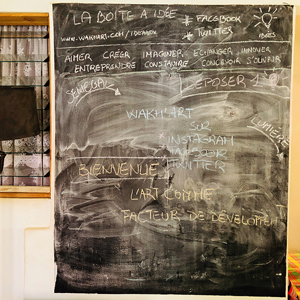 LA BOITE A IDÉE
# FACEBOOK
# TWITTER
www.wakhart.com/ideabox
IDÉES
AIMER CRÉER IMAGINER ECHANGER INNOVER
ENTREPRENDRE CONSTRUIRE CONCEVOIR S'OUVRIR
SENEGAL
DEPOSER 1
LUMIERE
WAKH'ART
SUR
INSTAGRAM
FACEBOOK
TWITTER
BIENVENUE
L'ART COMME
FACTEUR DE DEVELOPPEM